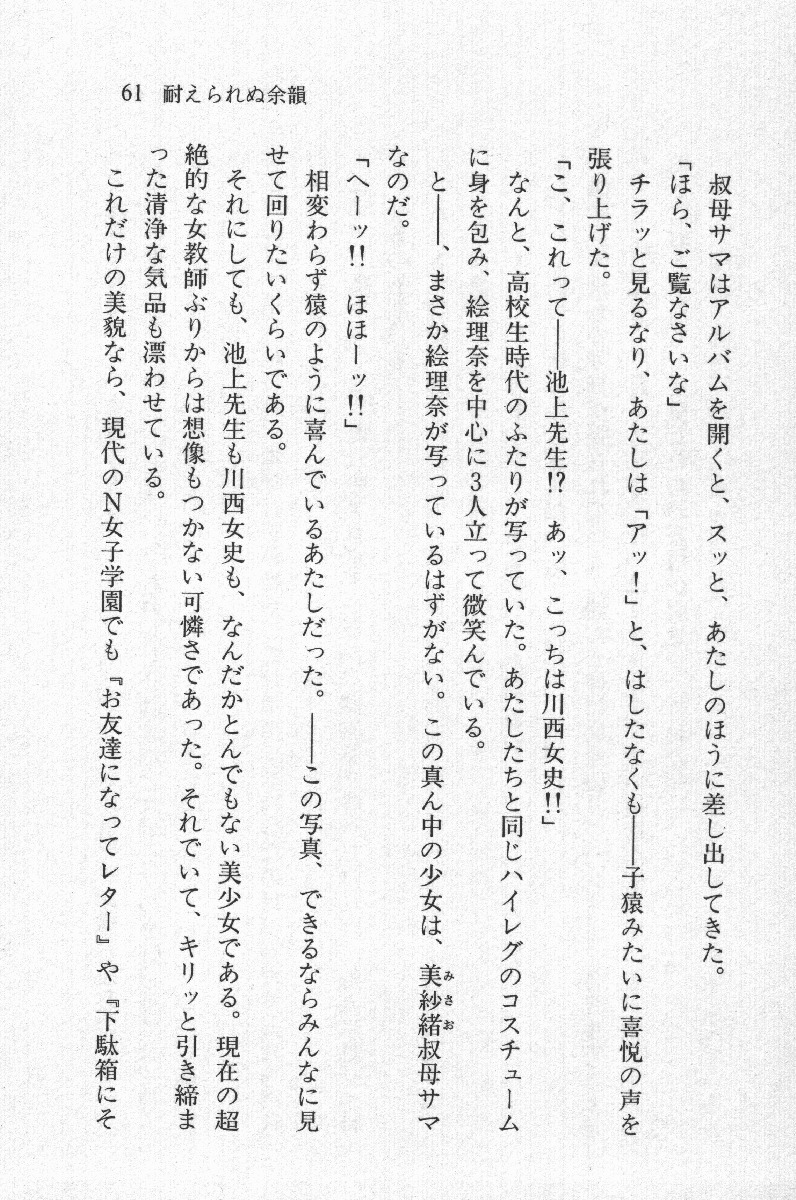 61　耐えられぬ余韻
　叔母サマはアルバムを開くと、スッと、あたしのほうに差し出してきた。
「ほら、ご覧なさいな」
　チラッと見るなり、あたしは「アッ！」と、はしたなくも――子猿みたいに喜悦の声を
張り上げた。
「こ、これって――池上先生!?　あッ、こっちは川西女史!!」
　なんと、高校生時代のふたりが写っていた。あたしたちと同じハイレグのコスチューム
に身を包み、絵理奈を中心に3人立って微笑んでいる。
　と――、まさか絵理奈が写っているはずがない。この真ん中の少女は、美紗緒叔母サマ
なのだ。
「へーッ!!　ほほーッ!!」
　相変わらず猿のように喜んでいるあたしだった。――この写真、できるならみんなに見
せて回りたいくらいである。
　それにしても、池上先生も川西女史も、なんだかとんでもない美少女である。現在の超
絶的な女教師ぶりからは想像もつかない可憐さであった。それでいて、キリッと引き締ま
った清浄な気品も漂わせている。
　これだけの美貌なら、現代のN女子学園でも『お友達になってレター』や『下駄箱にそ